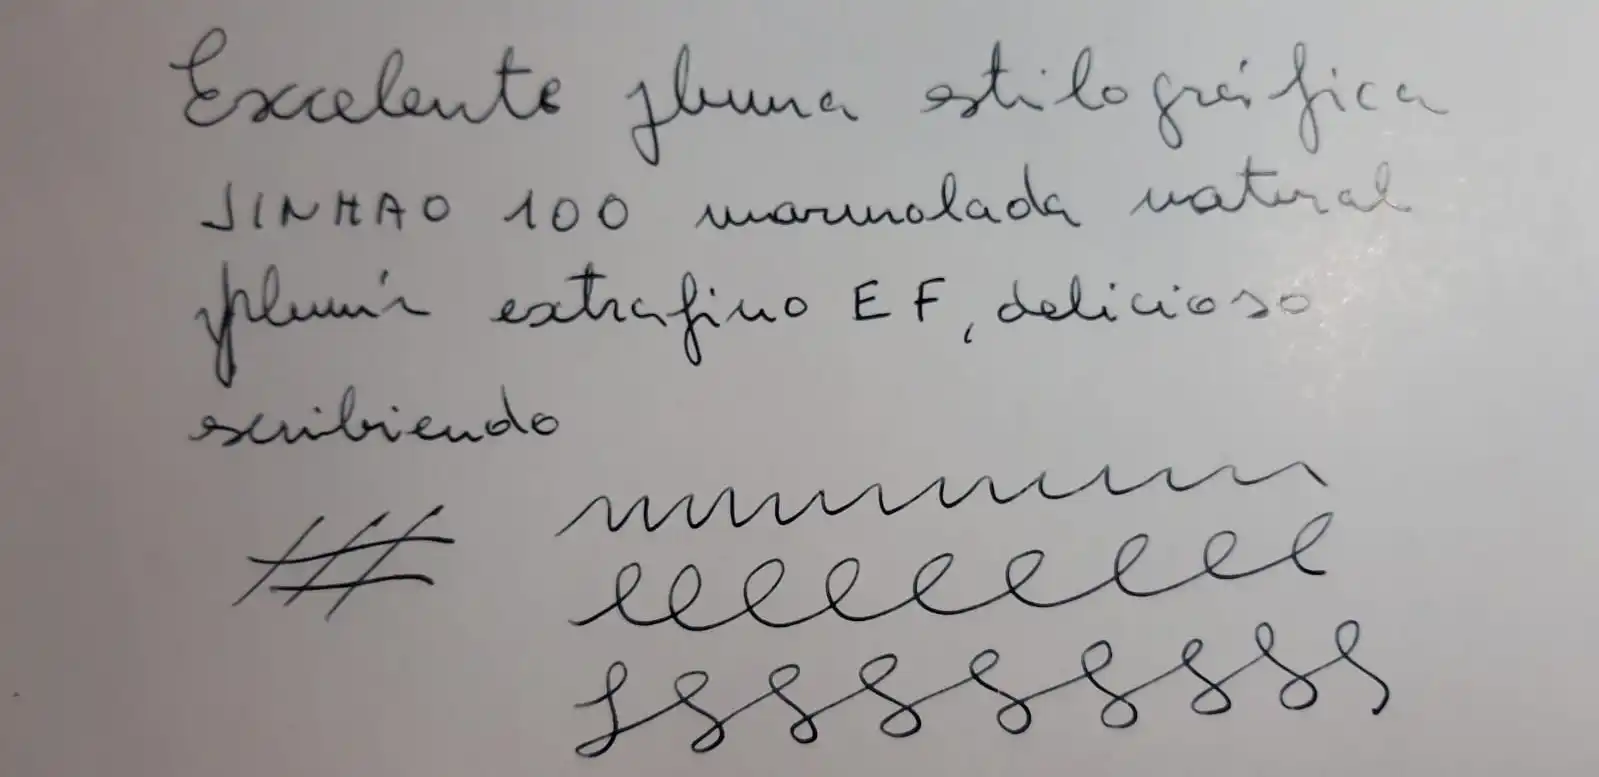 Excelente pluma estilográfica
JINHAO 100 marmolada natural
plumín extrafino EF, delicioso
scribiendo